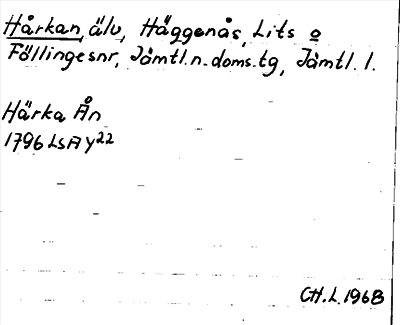 Hårkan, älv, Häggenås, Lits o
Föllinge snr, Jämtl. n. doms. tg, Jämtl. l.
Härka Ån
1796 LSA Y22
CH. L. 1968